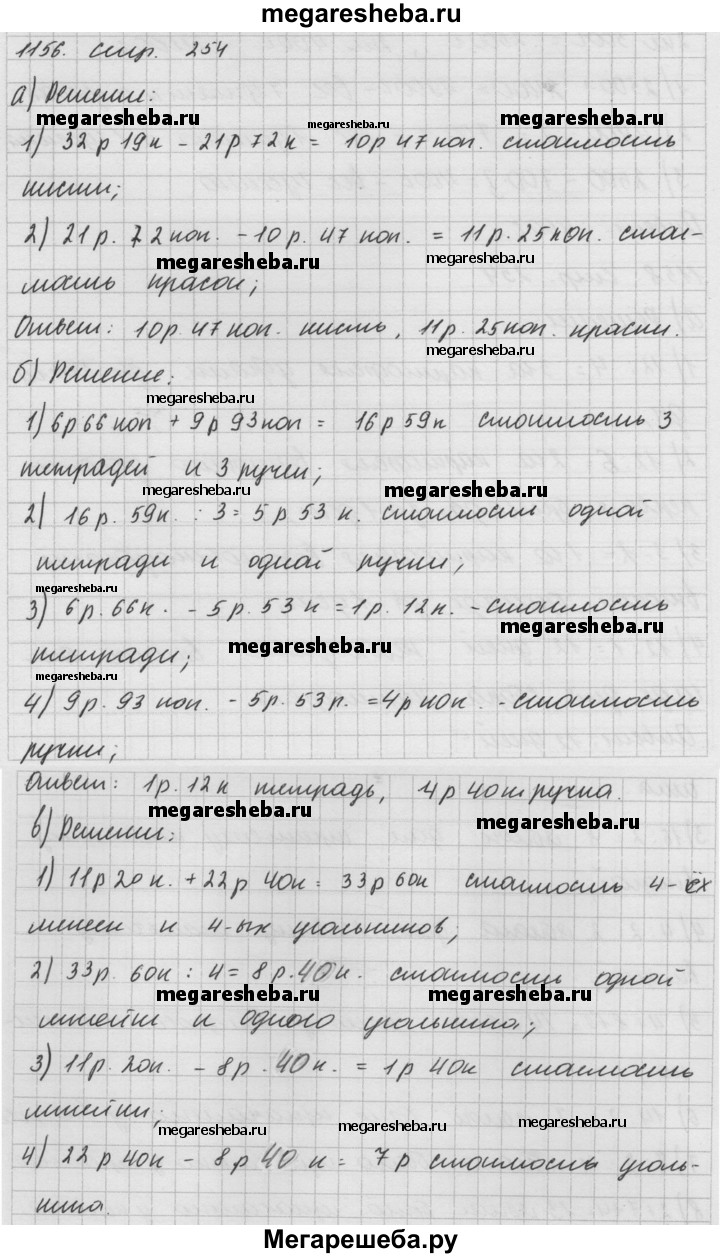 megaresheba.ru
1156. стр. 254
а) Решение:
megaresheba.ru megaresheba.ru megaresheba.ru
1) 32 р 19 к - 21 р 72 к = 10 р 47 коп. стоимость
кисти;
2) 21 р. 72 коп. - 10 р. 47 коп. = 11 р. 25 коп. стои-
megaresheba.ru megaresheba.ru
мость красок;
Ответ: 10 р. 47 коп. кисть, 11 р. 25 коп. краски.
megaresheba.ru
б) Решение:
megaresheba.ru
1) 6 р 66 коп + 9 р 93 коп = 16 р 59 к стоимость 3
тетрадей и 3 ручек;
megaresheba.ru megaresheba.ru
2) 16 р. 59 к. : 3 = 5 р 53 к. стоимости одной
тетради и одной ручки;
megaresheba.ru
3) 6 р. 66 к. - 5 р. 53 к = 1 р. 12 к. - стоимость
megaresheba.ru
тетради;
megaresheba.ru
4) 9 р. 93 коп. - 5 р. 53 р. = 4 р 40 к. - стоимость
ручки;
Ответ: 1 р. 12 к тетрадь, 4 р 40 к ручка.
megaresheba.ru megaresheba.ru
в) Решение:
1) 11 р 20 к. + 22 р 40 к = 33 р 60 к стоимость 4-ёх
линеек и 4-ых угольников;
2) 33 р. 60 к : 4 = 8 р. 40 к. стоимости одной
megaresheba.ru megaresheba.ru
линейки и одного угольника;
3) 11 р. 20 к. - 8 р. 40 к. = 1 р 40 к стоимость
линейки;
megaresheba.ru megaresheba.ru megaresheba.ru
4) 22 р 40 к - 8 р 40 к = 7 р стоимость уголь-
ника.
Мегарешеба.ру